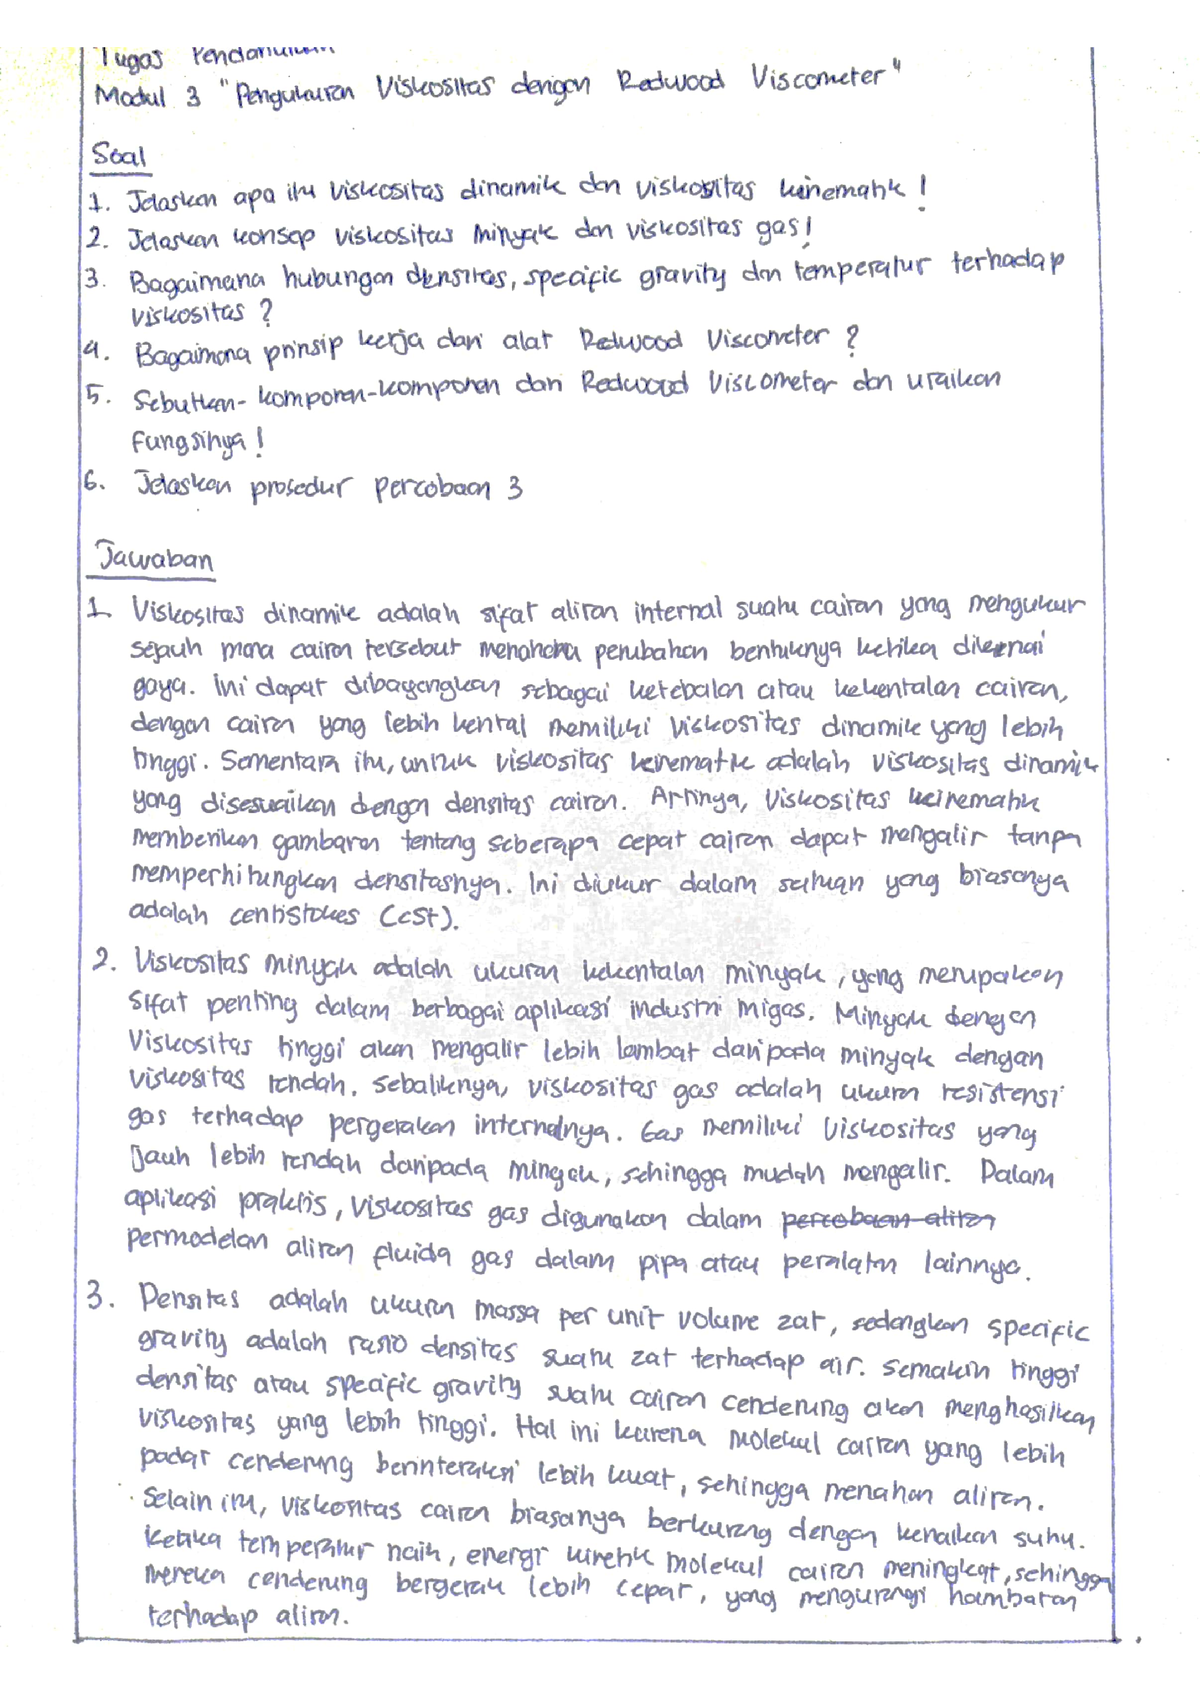 Tugas Pendahuluan
Modul 3 "Pengukuran Viskositas dengan Redwood Viscometer"
Soal
1. Jelaskan apa itu viskositas dinamik dan viskositas keinematik !
2. Jelaskan konsep viskositas minyak dan viskositas gas!
3. Bagaimana hubungan densitas, specific gravity dan temperatur terhadap
viskositas ?
4. Bagaimana prinsip kerja dari alat Redwood Viscometer ?
5. Sebutkan- komponen-komponen dari Redwood Viscometer dan uraikan
fungsinya !
6. Jelaskan prosedur percobaan 3
Jawaban
1 Viskositas dinamik adalah sifat aliran internal suatu cairan yang mengukur
sejauh mana cairan tersebut menahan perubahan bentuknya ketika dikenai
gaya. Ini dapat dibayangkan sebagai ketebalan atau kekentalan cairan,
dengan cairan yang lebih kental memiliki viskositas dinamik yang lebih
tinggi. Sementara itu, untuk viskositas keinematik adalah viskositas dinamik
yang disesuaikan dengan densitas cairan. Artinya, viskositas keinematik
memberikan gambaran tentang seberapa cepat cairan dapat mengalir tanpa
memperhitungkan densitasnya. Ini diukur dalam satuan yang biasanya
adalah centistokes (cSt).
2. Viskositas minyak adalah ukuran kekentalan minyak, yang merupakan
sifat penting dalam berbagai aplikasi industri migas. Minyak dengan
Viskositas tinggi akan mengalir lebih lambat daripada minyak dengan
viskositas rendah. Sebaliknya, viskositas gas adalah ukuran resistensi
gas terhadap pergerakan internalnya. Gas memiliki viskositas yang
jauh lebih rendah daripada minyak, sehingga mudah mengalir. Dalam
aplikasi praktis, viskositas gas digunakan dalam percobaan aliran
permodelan aliran fluida gas dalam pipa atau peralatan lainnya.
3. Densitas adalah ukuran massa per unit volume zat, sedangkan specific
gravity adalah rasio densitas suatu zat terhadap air. Semakin tinggi
densitas atau specific gravity suatu cairan cenderung akan menghasilkan
viskositas yang lebih tinggi. Hal ini karena molekul cairan yang lebih
padat cenderung berinteraksi lebih kuat, sehingga menahan aliran.
Selain itu, viskositas cairan biasanya berkurang dengan kenaikan suhu.
Ketika temperatur naik, energi kinetik molekul cairan meningkat, sehingga
mereka cenderung bergerak lebih cepat, yang mengurangi hambatan
terhadap aliran.